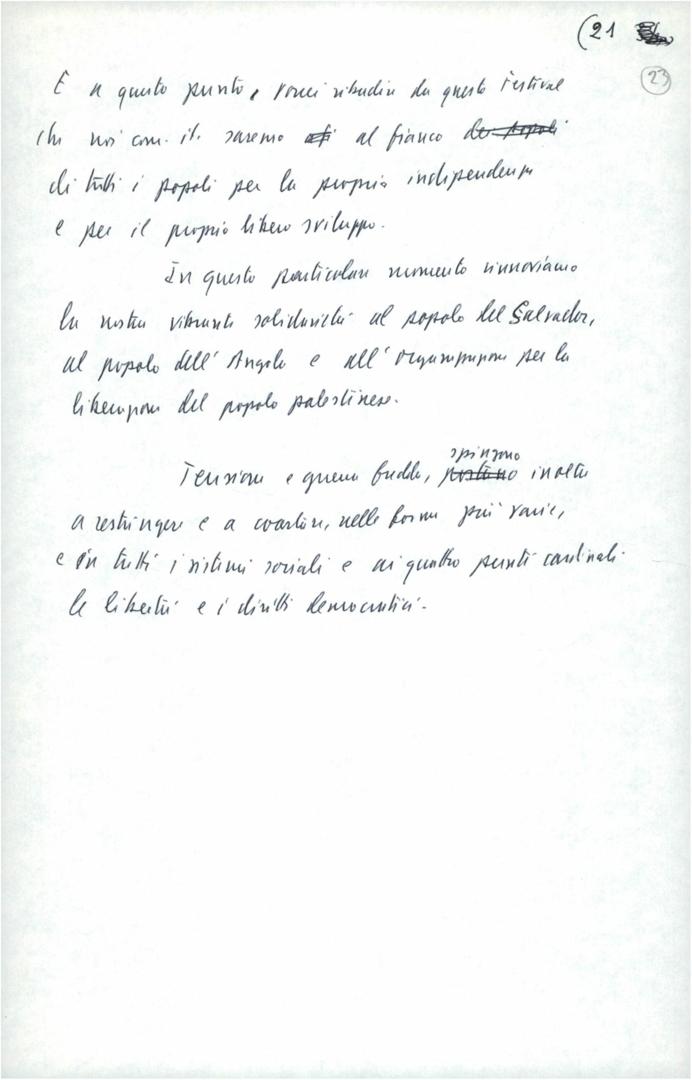 (21
23
E a questo punto, vorrei ribadire da questo Festival
che noi com. it. saremo al fianco dei popoli
di tutti i popoli per la propria indipendenza
e per il proprio libero sviluppo.
In questo particolare momento rinnoviamo
la nostra vibrante solidarietà al popolo del Salvador,
al popolo dell'Angola e all'organizzazione per la
liberazione del popolo palestinese.
spingono
Tensione e guerra fredda, portano inoltre
a restringere e a coartare, nelle forme più varie,
e in tutti i sistemi sociali e ai quattro punti cardinali
le libertà e i diritti democratici.